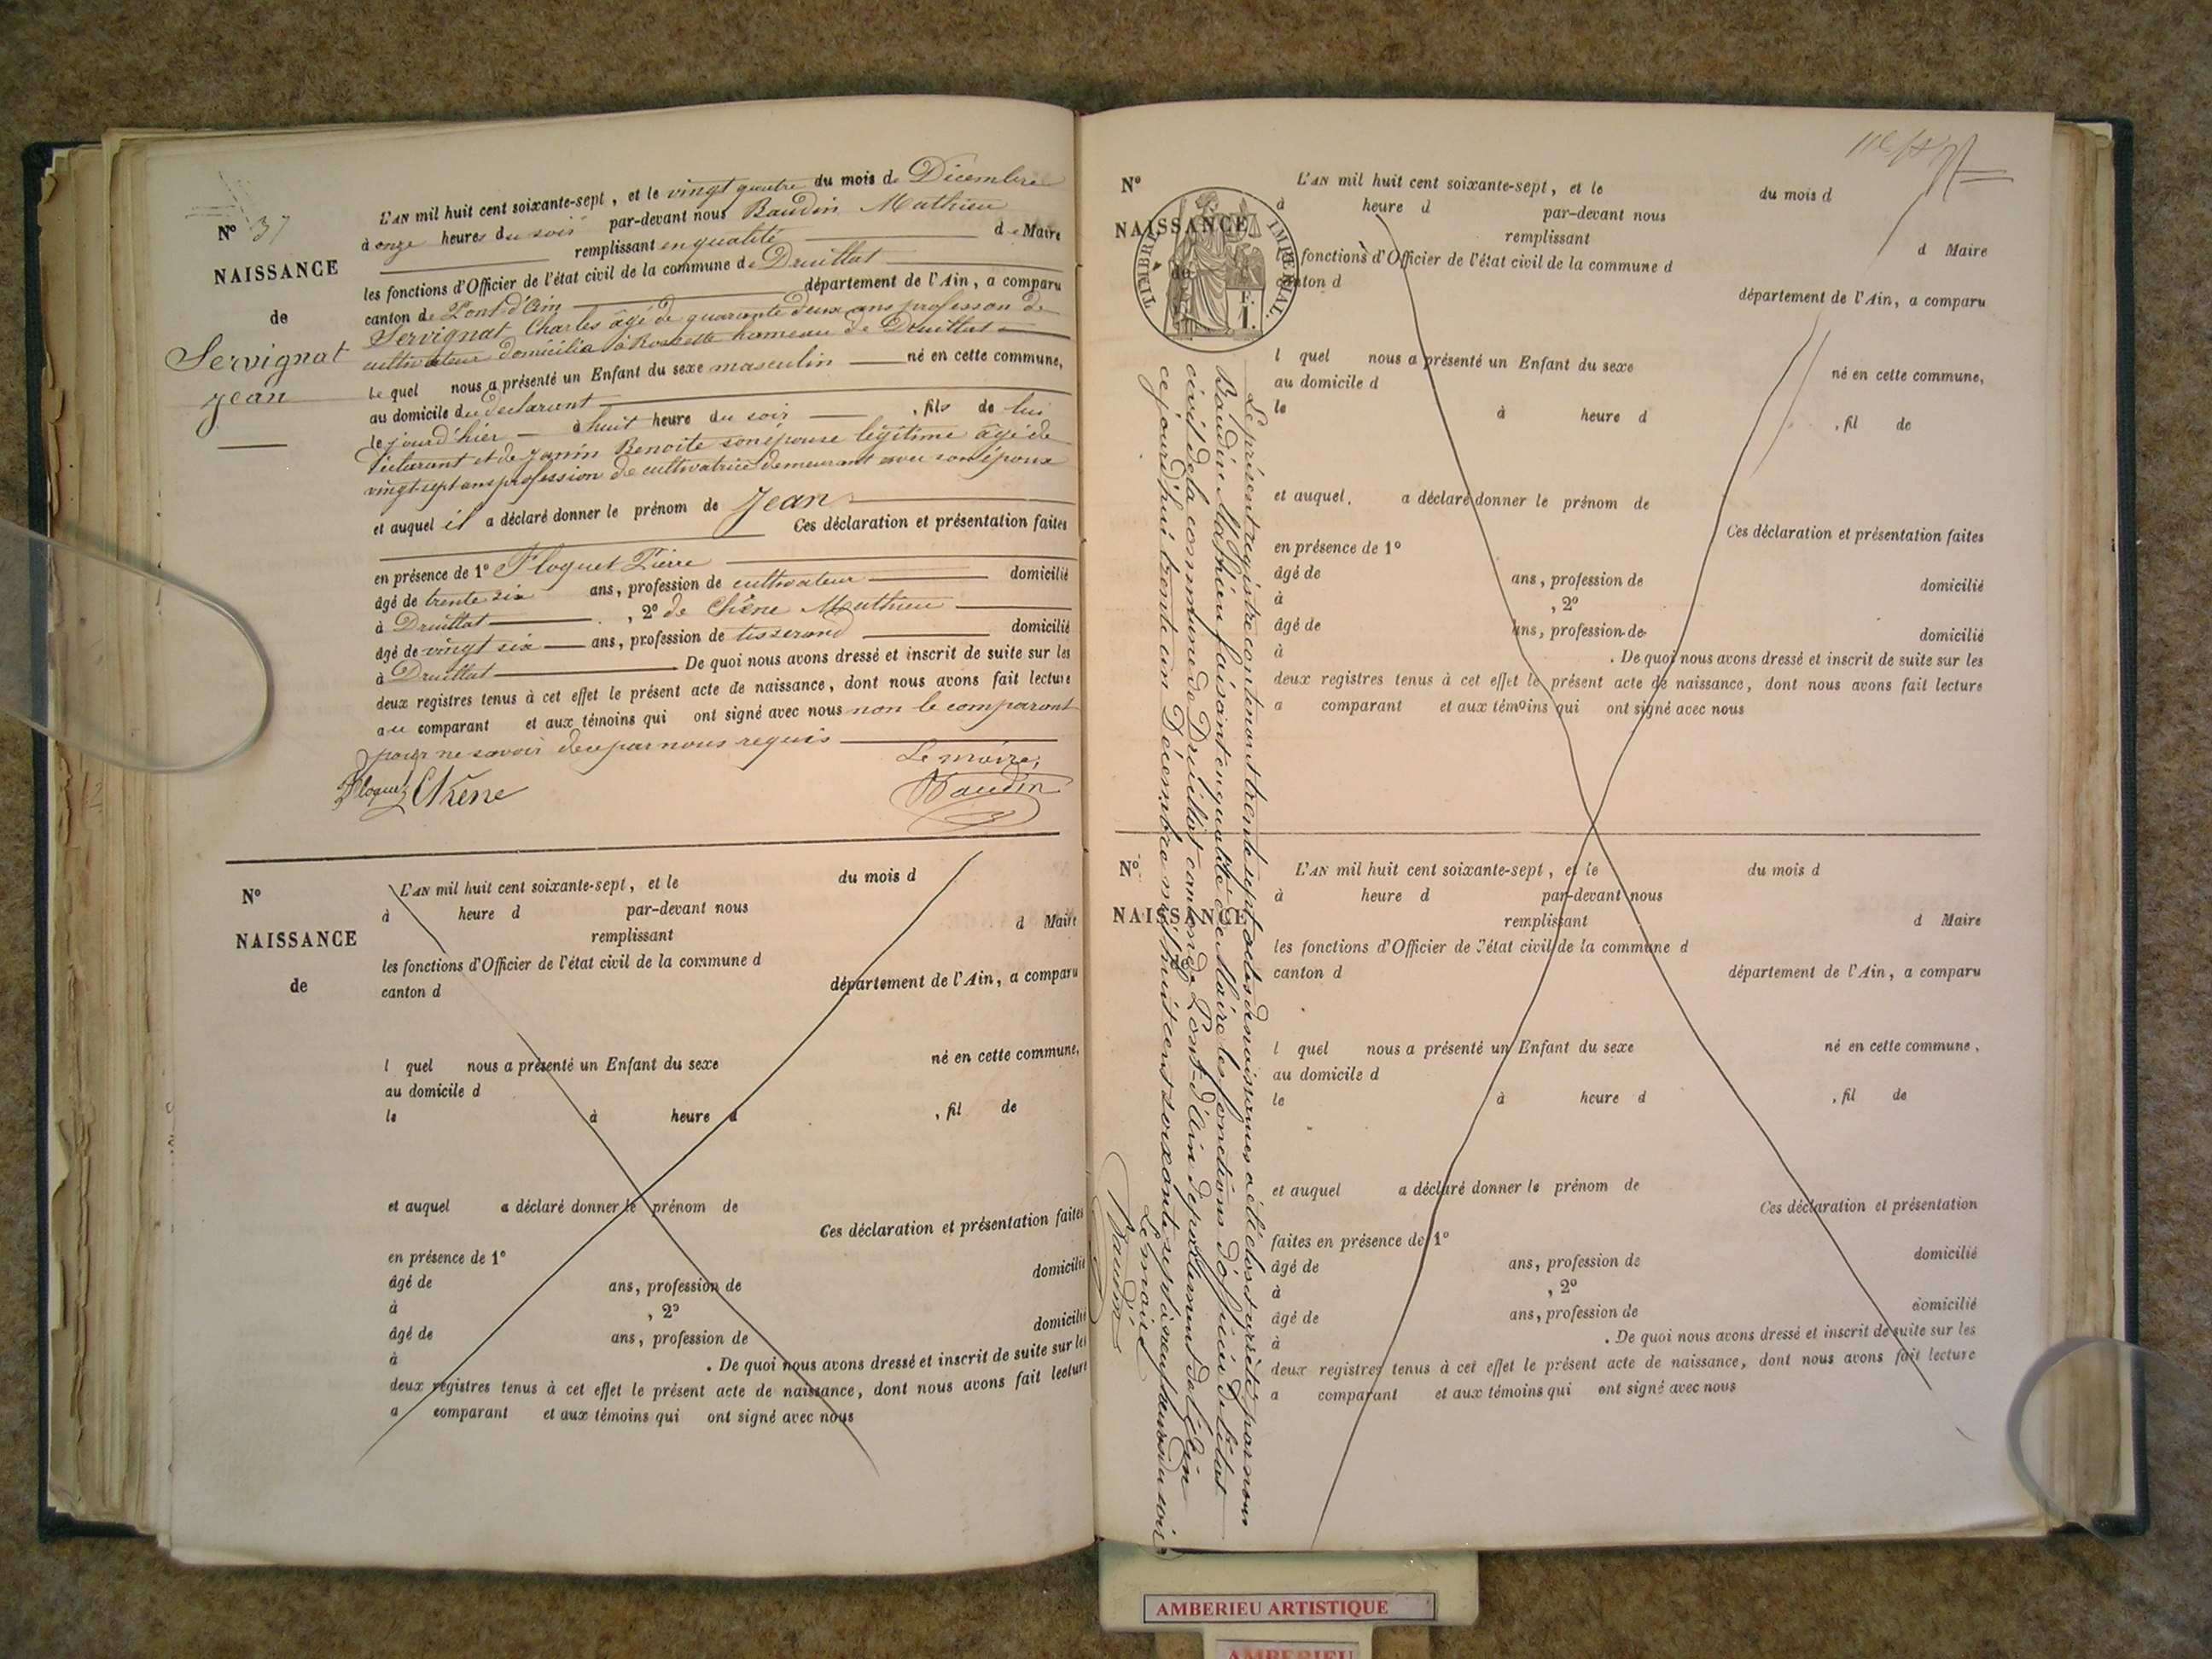 N° 37
NAISSANCE
de
Servignat
Jean
L'AN mil huit cent soixante-sept, et le vingt quatre du mois de Décembre
à onze heures du soir par-devant nous Baudin Mathieu
remplissant en qualité de Maire
les fonctions d'Officier de l'état civil de la commune de Druillat
canton de Pont-d'Ain département de l'Ain, a comparu
Servignat Charles âgé de quarante deux ans profession de
cultivateur domicilié à Rossette hameau de Druillat
Le quel nous a présenté un Enfant du sexe masculin né en cette commune,
au domicile du déclarant
le jourd'hier à huit heure du soir, fils de lui
déclarant et de Janin Benoite son épouse légitime âgé de
vingt sept ans profession de cultivatrice demeurant avec son époux
et auquel il a déclaré donner le prénom de Jean
Ces déclaration et présentation faites
en présence de 1° Floquet Pierre
âgé de trente six ans, profession de cultivateur domicilié
à Druillat, 2° de Chêne Mathieu
âgé de vingt six ans, profession de tisserand domicilié
à Druillat. De quoi nous avons dressé et inscrit de suite sur les
deux registres tenus à cet effet le présent acte de naissance, dont nous avons fait lecture
au comparant et aux témoins qui ont signé avec nous non le comparant
pour ne savoir de ce par nous requis
Le maire,
Floquet Chêne Baudin
N°
NAISSANCE
de
L'AN mil huit cent soixante-sept, et le du mois d
à heure d par-devant nous
remplissant d Maire
les fonctions d'Officier de l'état civil de la commune d
canton d département de l'Ain, a comparu
l quel nous a présenté un Enfant du sexe né en cette commune,
au domicile d
le à heure d , fil de
et auquel a déclaré donner le prénom de
Ces déclaration et présentation faites
en présence de 1°
âgé de ans, profession de domicilié
à , 2°
âgé de ans, profession de domicilié
à . De quoi nous avons dressé et inscrit de suite sur les
deux registres tenus à cet effet le présent acte de naissance, dont nous avons fait lecture
a comparant et aux témoins qui ont signé avec nous
N°
NAISSANCE
de
TIMBRE IMPERIAL
F.
1.
L'AN mil huit cent soixante-sept, et le du mois d
à heure d par-devant nous
remplissant d Maire
les fonctions d'Officier de l'état civil de la commune d
canton d département de l'Ain, a comparu
l quel nous a présenté un Enfant du sexe né en cette commune,
au domicile d
le à heure d , fil de
et auquel a déclaré donner le prénom de
Ces déclaration et présentation faites
en présence de 1°
âgé de ans, profession de domicilié
à , 2°
âgé de ans, profession de domicilié
à . De quoi nous avons dressé et inscrit de suite sur les
deux registres tenus à cet effet le présent acte de naissance, dont nous avons fait lecture
a comparant et aux témoins qui ont signé avec nous
N°
NAISSANCE
L'AN mil huit cent soixante-sept, et le du mois d
à heure d par-devant nous
remplissant d Maire
les fonctions d'Officier de l'état civil de la commune d
canton d département de l'Ain, a comparu
l quel nous a présenté un Enfant du sexe né en cette commune,
au domicile d
le à heure d , fil de
et auquel a déclaré donner le prénom de
Ces déclaration et présentation
faites en présence de 1°
âgé de ans, profession de domicilié
à , 2°
âgé de ans, profession de domicilié
à . De quoi nous avons dressé et inscrit de suite sur les
deux registres tenus à cet effet le présent acte de naissance, dont nous avons fait lecture
a comparant et aux témoins qui ont signé avec nous
Le présent registre contenant trente sept actes de naissances a été clos et arrêté par nous
Baudin Mathieu faisant en qualité de Maire les fonctions d'officier de l'état
civil de la commune de Druillat canton de Pont-d'Ain département de l'Ain
ce jourd'hui trente un Décembre mil huit cent soixante sept à neuf heures du soir
Le maire
Baudin
AMBERIEU ARTISTIQUE
AMBERIEU